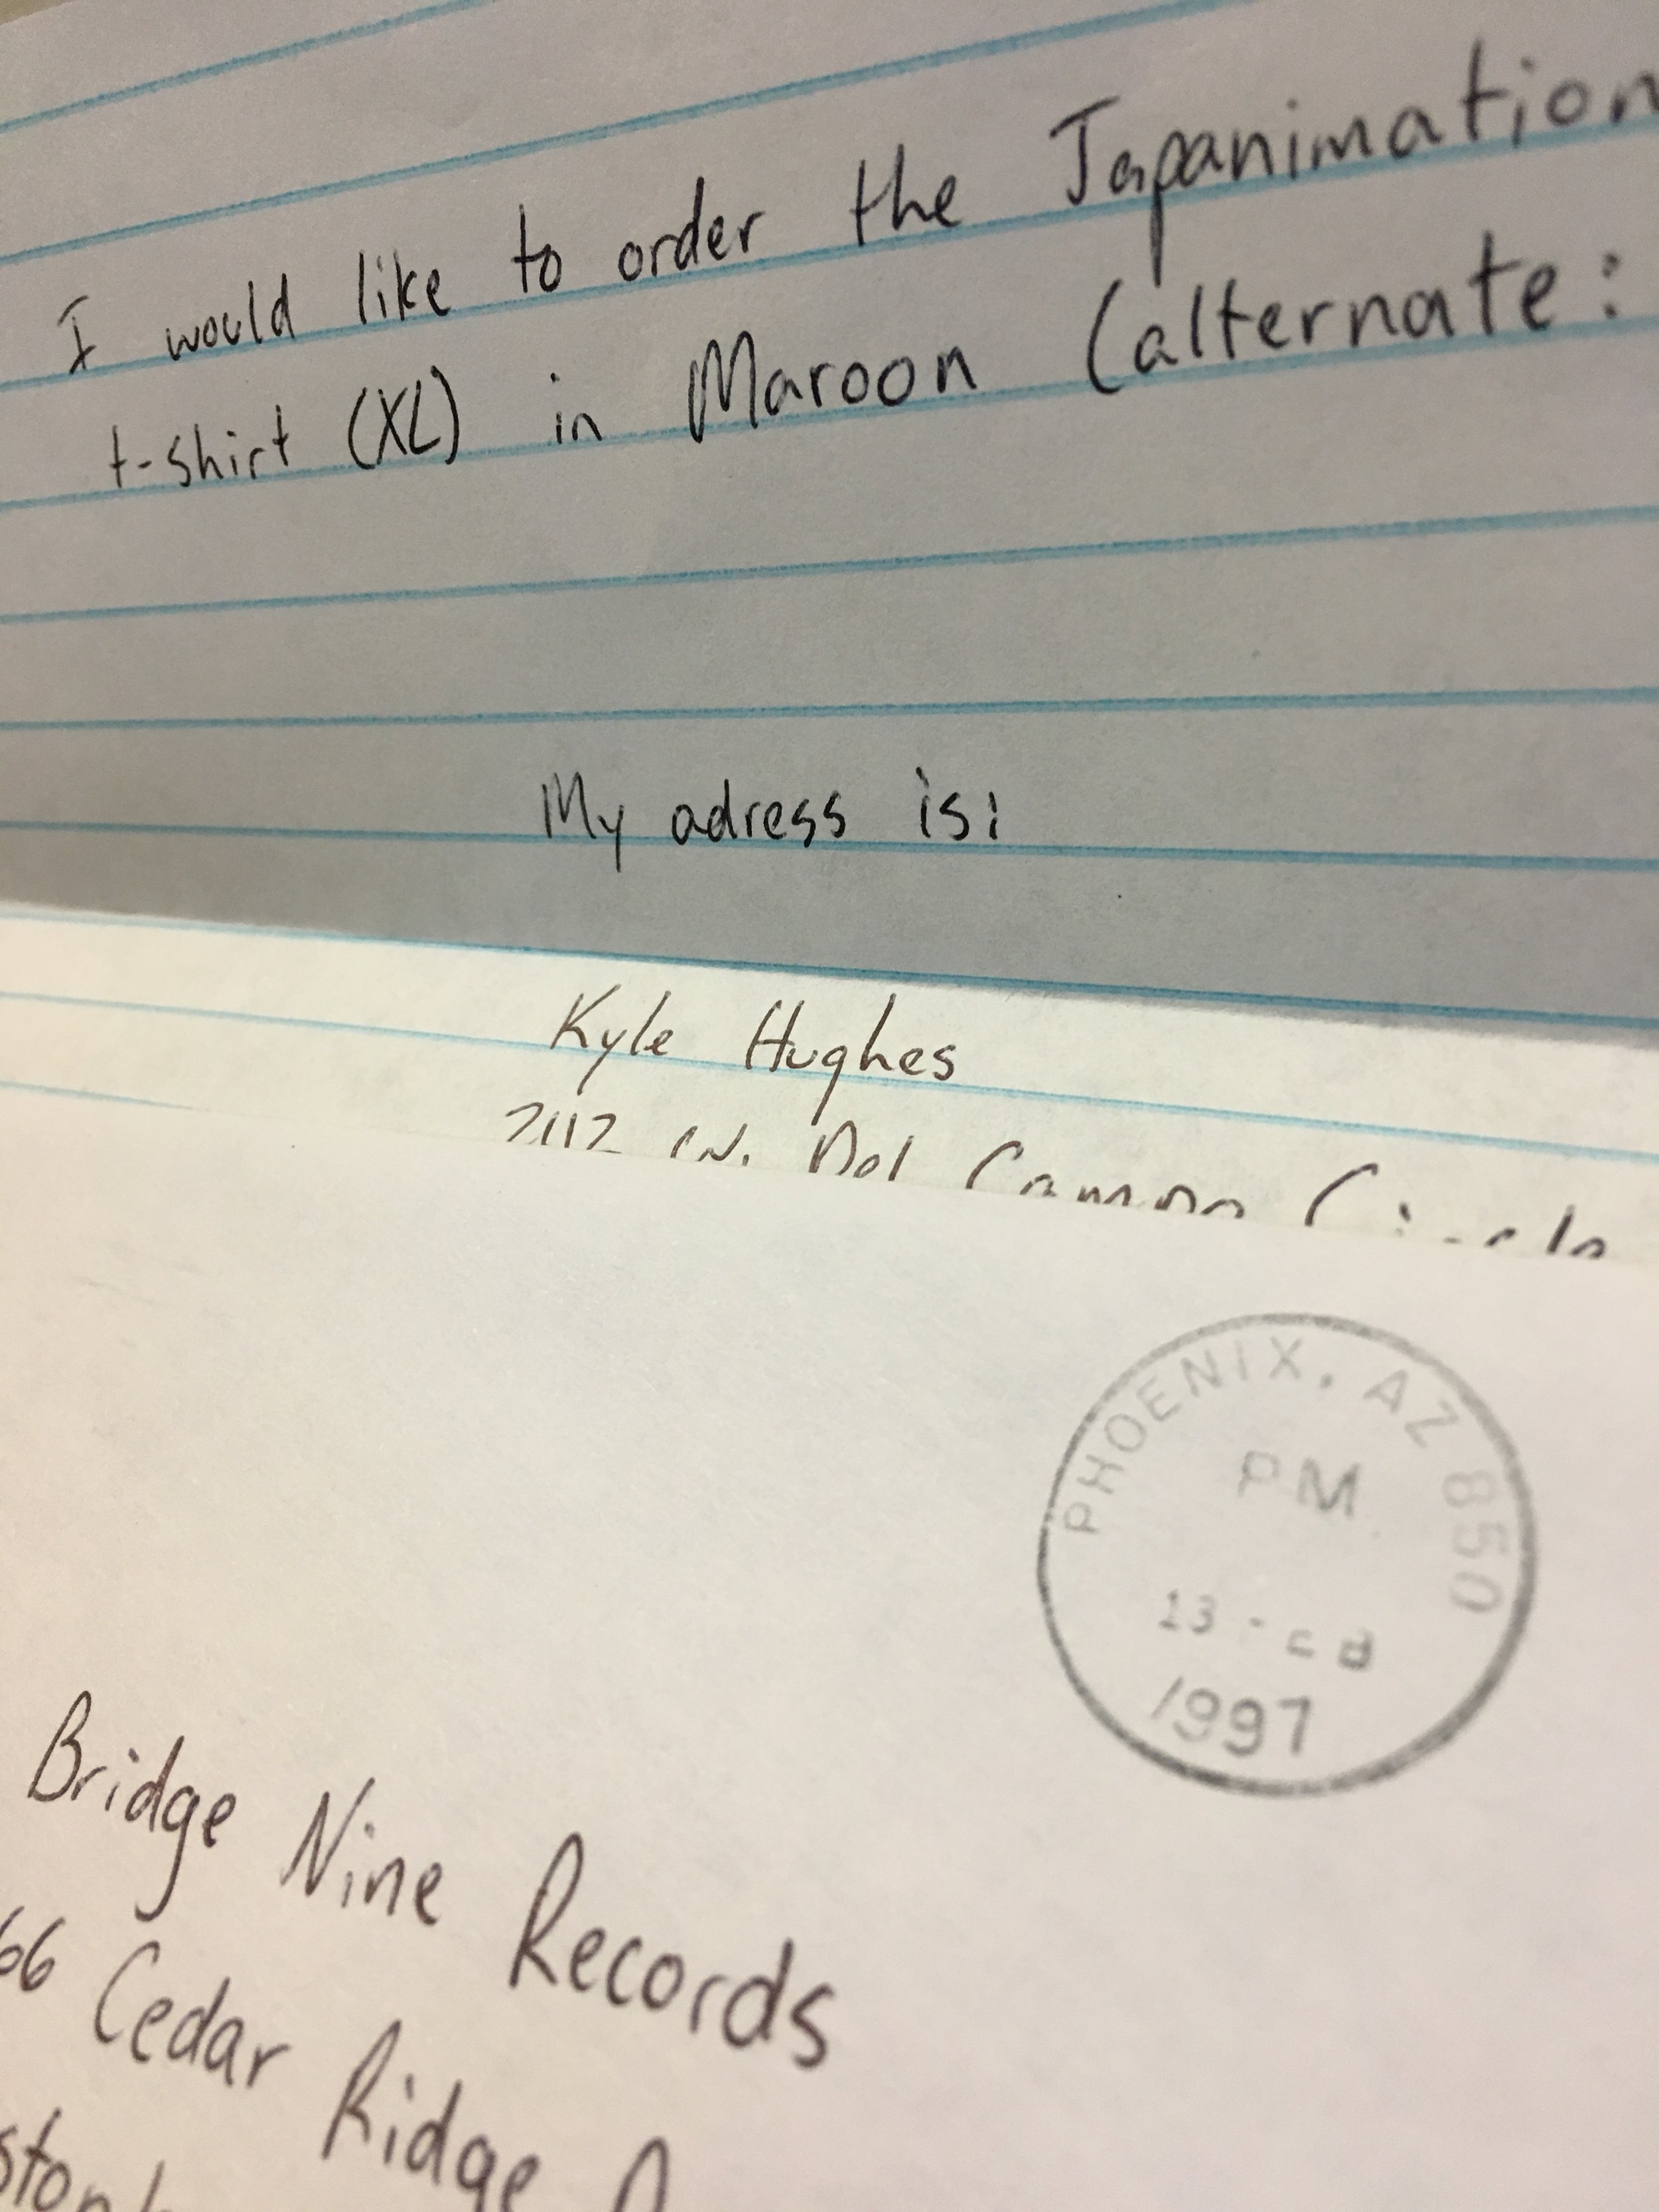 I would like to order the Japanimation
t-shirt (XL) in Maroon (alternate:
My adress is:
Kyle Hughes
2112 W. Del Campo Circle
PHOENIX, AZ 850
PM
13
1997
Bridge Nine Records
66 Cedar Ridge